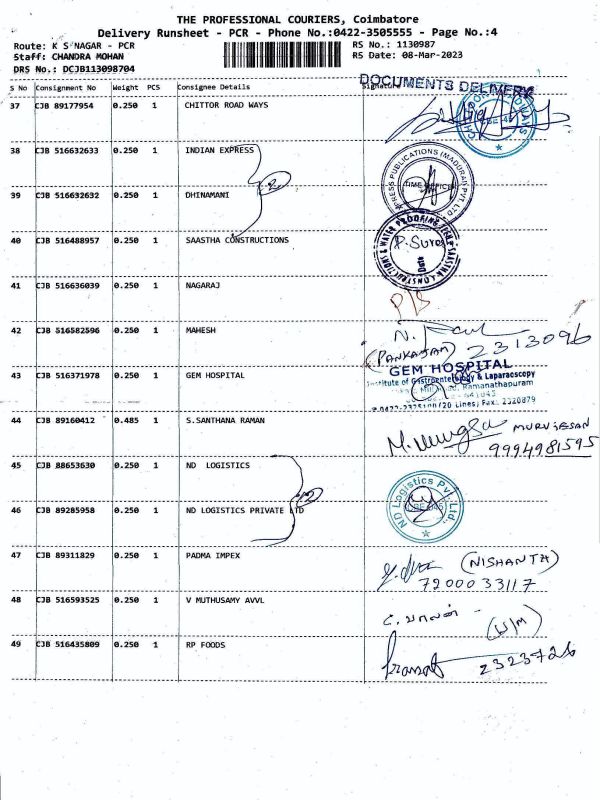 THE PROFESSIONAL COURIERS, Coimbatore
Delivery Runsheet - PCR - Phone No.:0422-3505555 - Page No.:4
Route: K S NAGAR - PCR RS No.: 1130987
Staff: CHANDRA MOHAN RS Date: 08-Mar-2023
DRS No.: DCJB113098704
DOCUMENTS DELIVERY
S No Consignment No Weight PCS Consignee Details Signature
37 CJB 89177954 0.250 1 CHITTOR ROAD WAYS
38 CJB 516632633 0.250 1 INDIAN EXPRESS
PRESS PUBLICATIONS (MADURAI) PVT. LTD
TIME OFFICE
39 CJB 516632632 0.250 1 DHINAMANI
40 CJB 516488957 0.250 1 SAASTHA CONSTRUCTIONS
Date
41 CJB 516636039 0.250 1 NAGARAJ
42 CJB 516582596 0.250 1 MAHESH
(PANKAJAM) 2313096
43 CJB 516371978 0.250 1 GEM HOSPITAL
GEM HOSPITAL
Institute of Gastroenterology & Laparascopy
Ramanathapuram
44 CJB 89160412 0.485 1 S.SANTHANA RAMAN
MURUGESAN
9994981595
45 CJB 88653630 0.250 1 ND LOGISTICS
46 CJB 89285958 0.250 1 ND LOGISTICS PRIVATE LTD
ND Logistics Pvt. Ltd.,
47 CJB 89311829 0.250 1 PADMA IMPEX
(NISHANTH)
7200033117
48 CJB 516593525 0.250 1 V MUTHUSAMY AVVL
49 CJB 516435809 0.250 1 RP FOODS
2323726